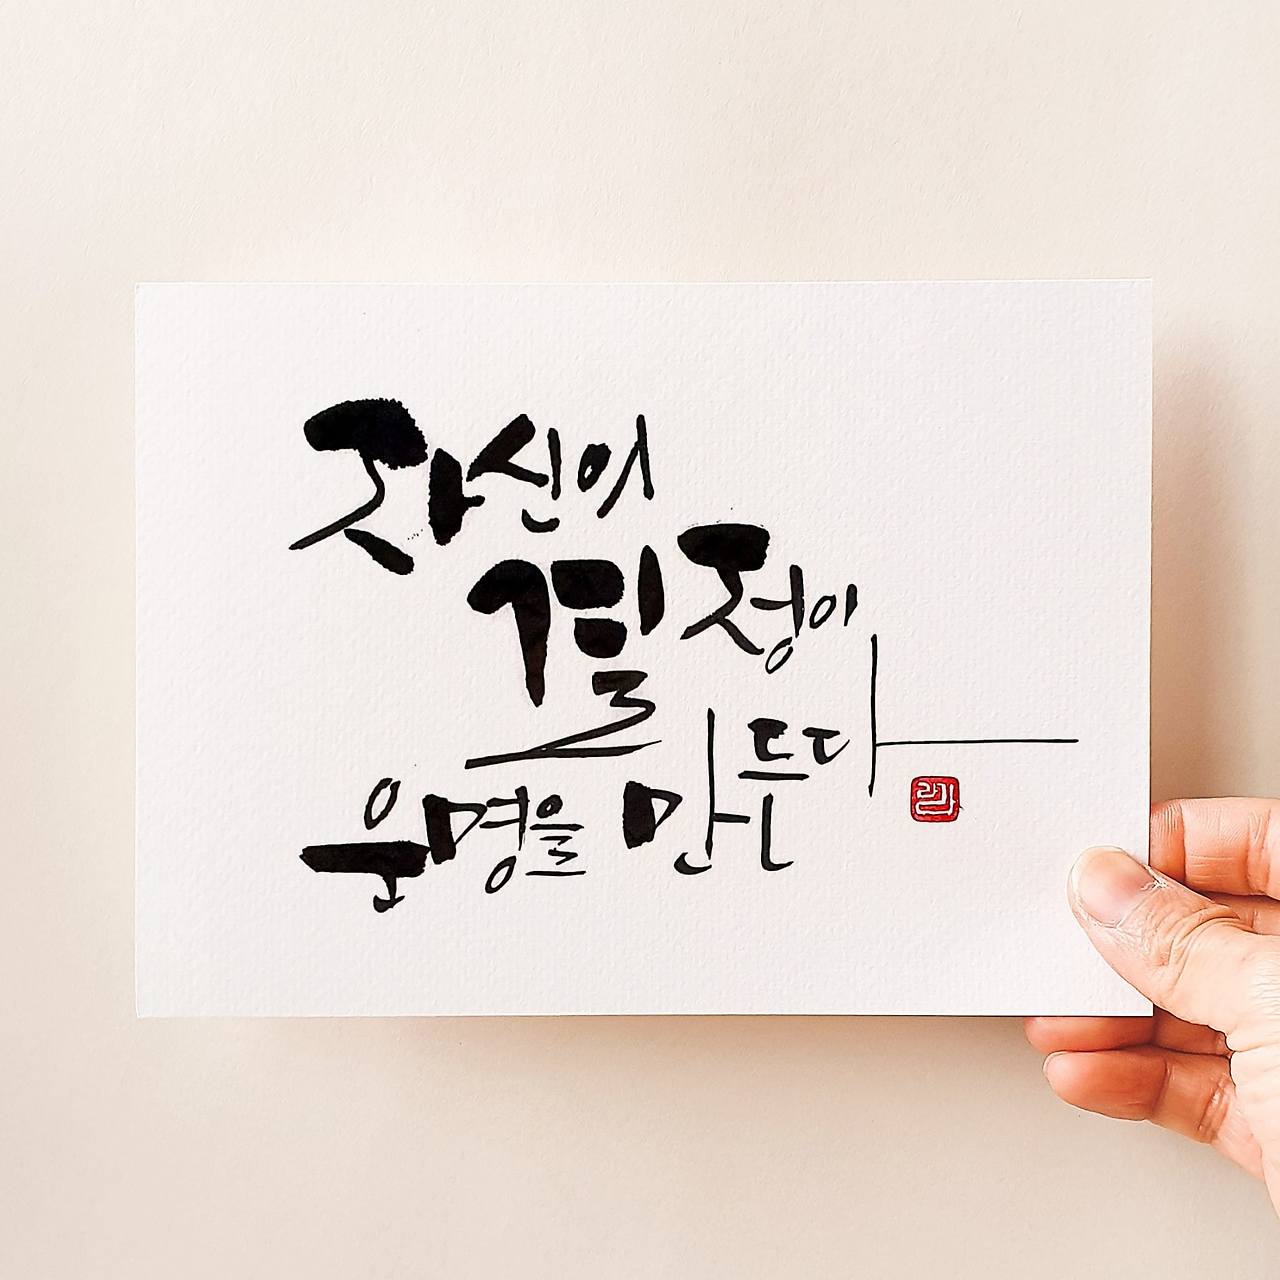 자신의
결정이
운명을 만든다